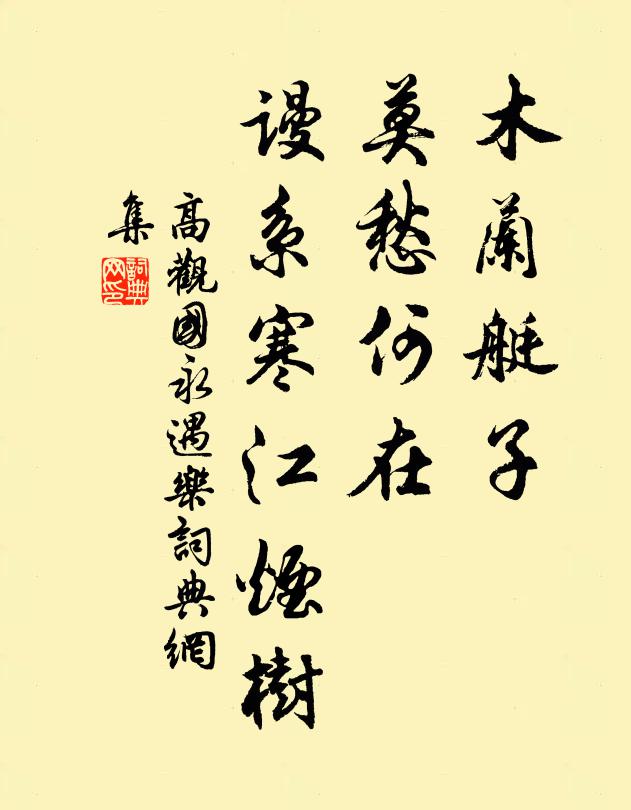 木蘭艇子
莫愁何在
谩系寒江煙樹
高觀國永遇樂詞典網
集
詞典
网印